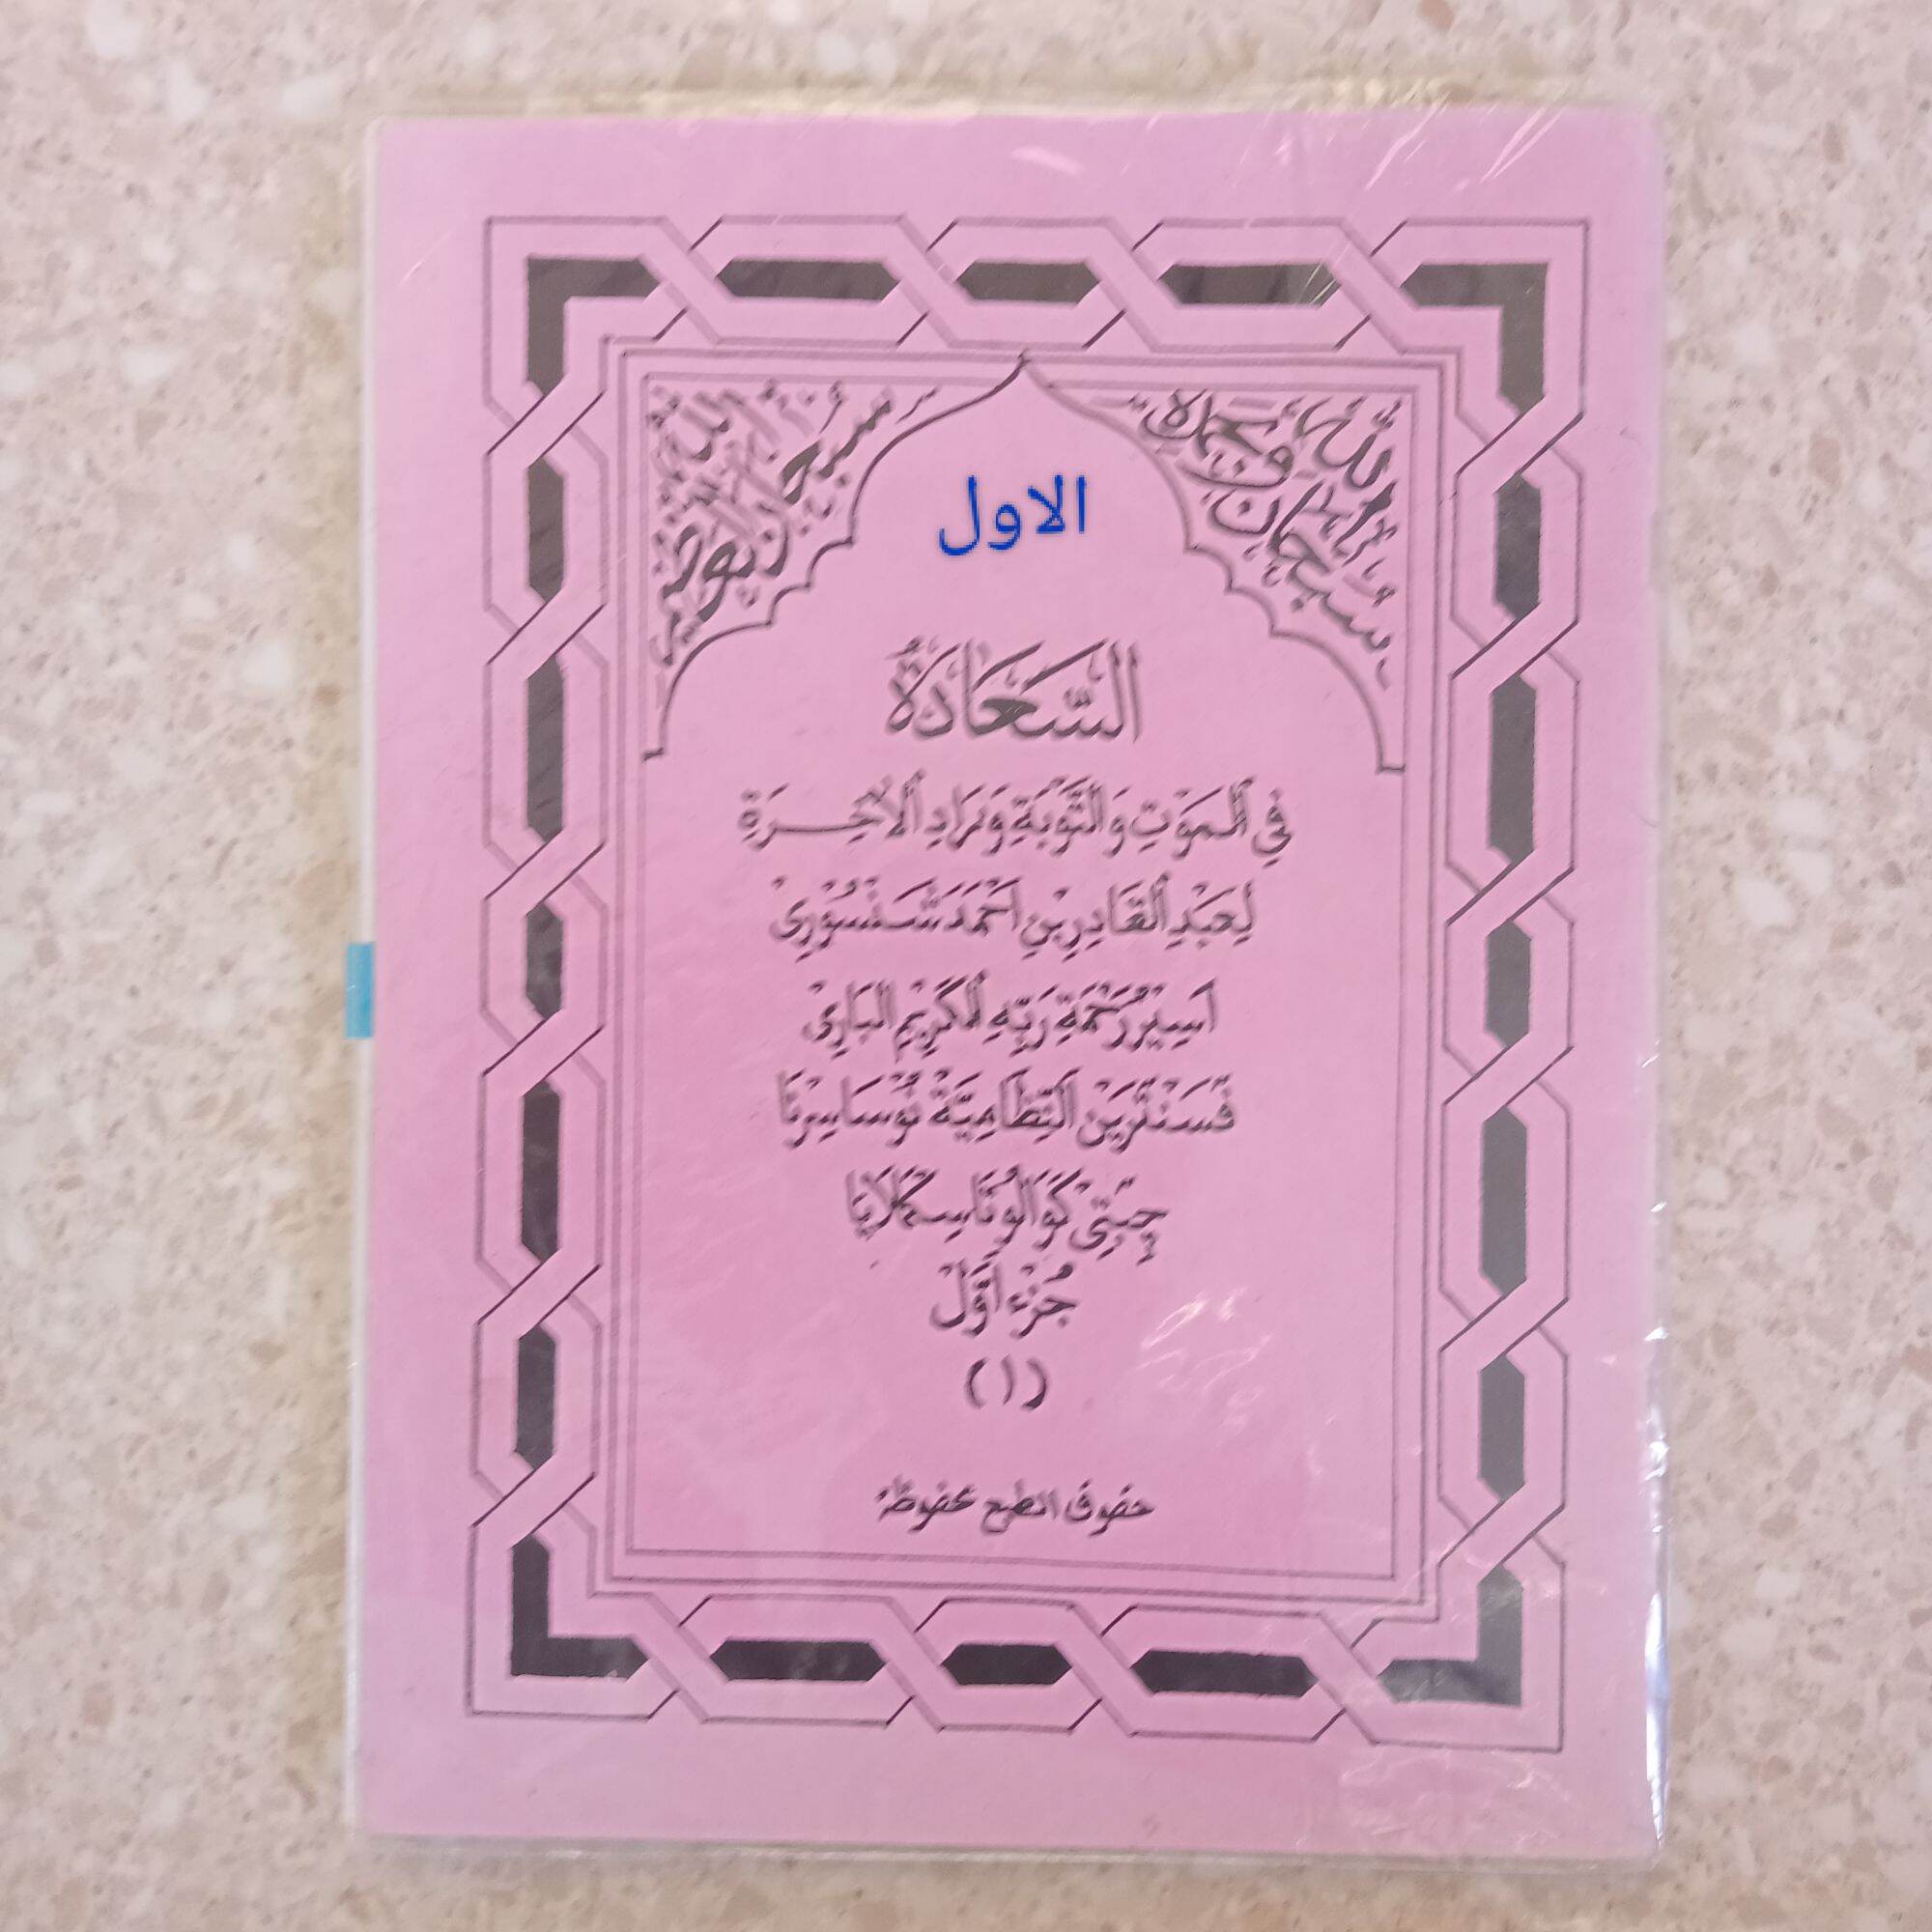 سُبْحَانَ اللهِ وَبِحَمْدِهِ
سُبْحَانَ اللهِ الْعَظِيْمِ
الاول
السَّعَادَةُ
فِي الْمَوْتِ وَالتَّوْبَةِ وَزَادِ الْآخِرَةِ
لِعَبْدِ الْقَادِرِ بْنِ اَحْمَدَ شَنْسُوْرِىْ
اَسِيْرُ رَحْمَةِ رَبِّهِ الْكَرِيْمِ الْبَارِىْ
فَسَنْتْرَيْن النِّظَامِيَّةْ نُوْسَاسِرْنَا
چِبِتِىْ كَوَالُوْ تَاسِكْمَلَايَا
جُزْء اَوَّلْ
(١)
حقوق الطبع محفوظة